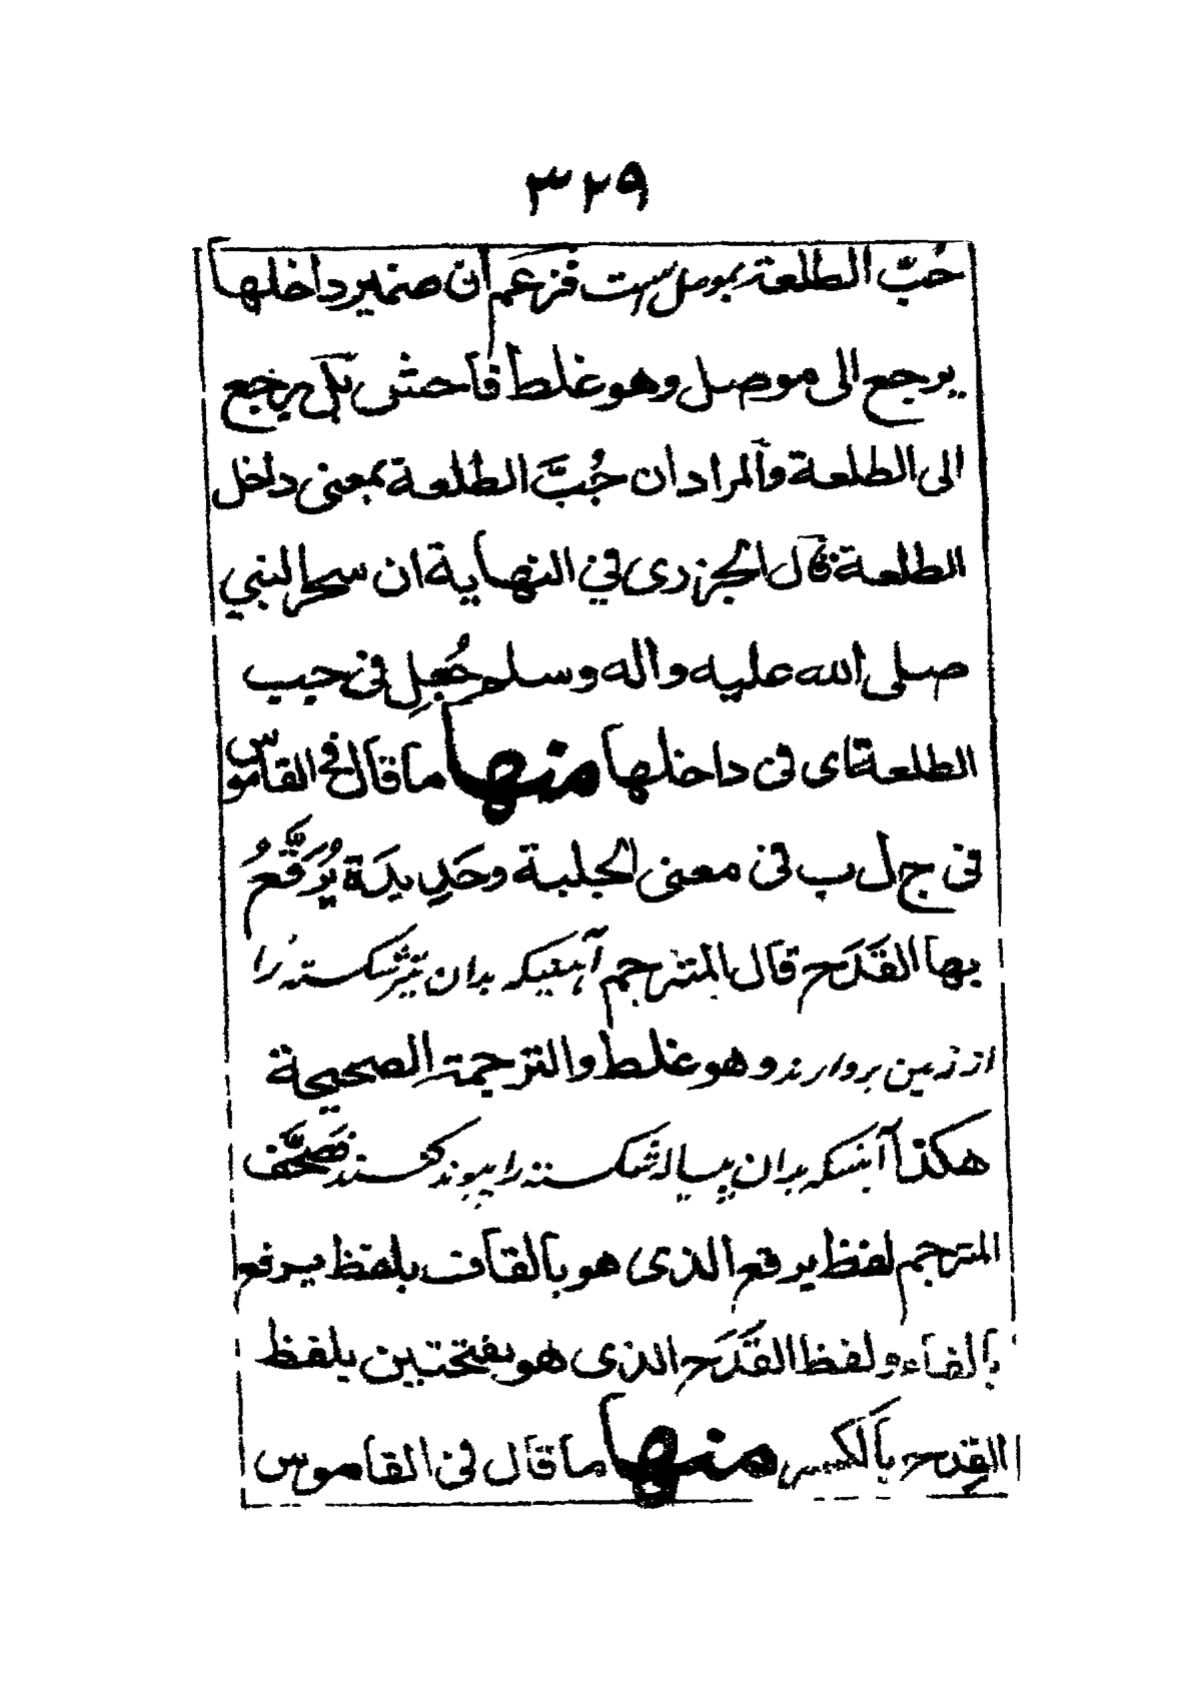 ٣٢٩
حُبّ الطلعة بموصل ست فزعم ان ضمير داخلها
يرجع الى موصل وهو غلط فاحش بل يرجع
الى الطلعة والمراد ان جُبَّ الطلعة بمعنى داخل
الطلعة قال الجزرى فى النهاية ان سحر النبي
صلى الله عليه واله وسلم جُعِل فى جب
الطلعة اى فى داخلها منها ما قال فى القاموس
فى ج ل ب فى معنى الجلبة وحَدِيدَة يُرَقَّعُ
بها القَدَح قال المترجم آهنيكه بدان تير شكسته را
از زمين بردارند وهو غلط والترجمة الصحيحة
هكذا آهنيكه بدان پياله شكسته را پيوند كنند فصحَّف
المترجم لفظ يرقع الذى هو بالقاف بلفظ يرفع
بالفاء ولفظ القَدَح الذى هو بفتحتين بلفظ
القِدح بالكسر منها ما قال فى القاموس